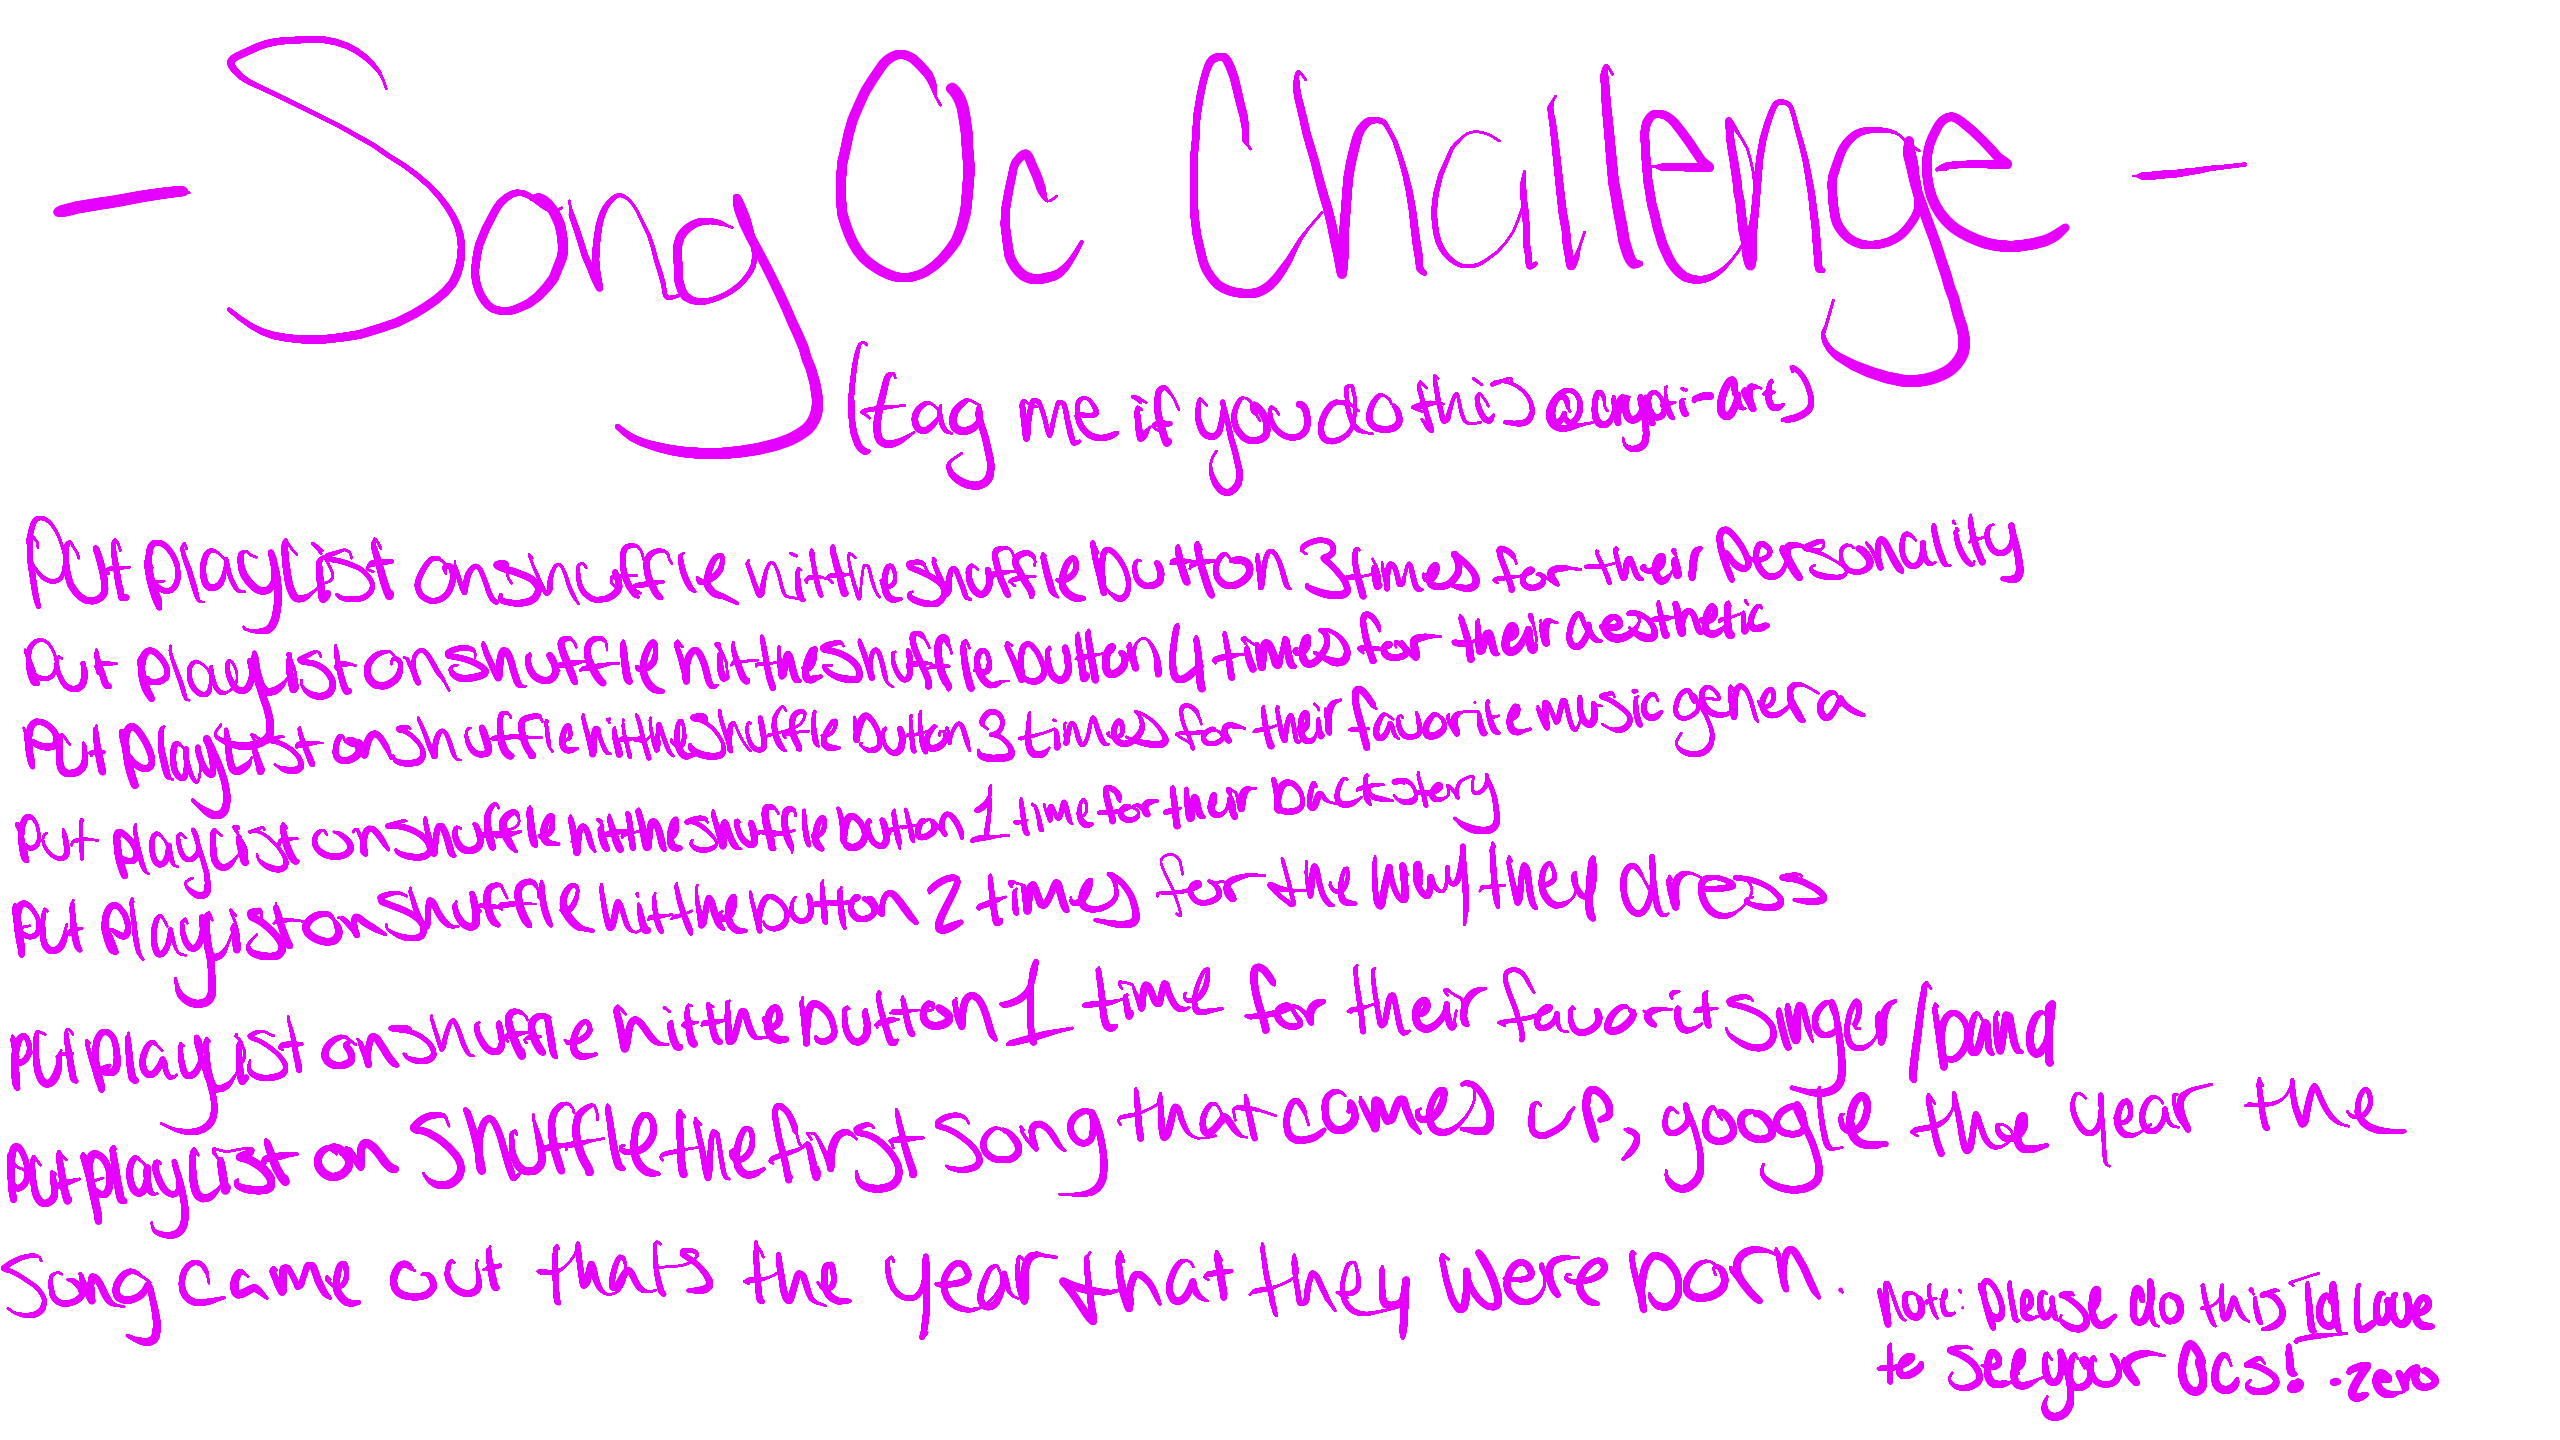 - Song Oc Challenge -
(tag me if you do this @crypti-art)
Put playlist on shuffle hit the shuffle button 3 times for their personality
Put playlist on shuffle hit the shuffle button 4 times for their aesthetic
Put playlist on shuffle hit the shuffle button 3 times for their favorite music genera
Put playlist on shuffle hit the shuffle button 1 time for their backstory
Put playlist on shuffle hit the button 2 times for the way they dress
Put playlist on shuffle hit the button 1 time for their favorit singer/band
Put playlist on shuffle the first song that comes up, google the year the
Song came out thats the year that they were born.
Note: Please do this I'd love
to see your OCs! -Zero